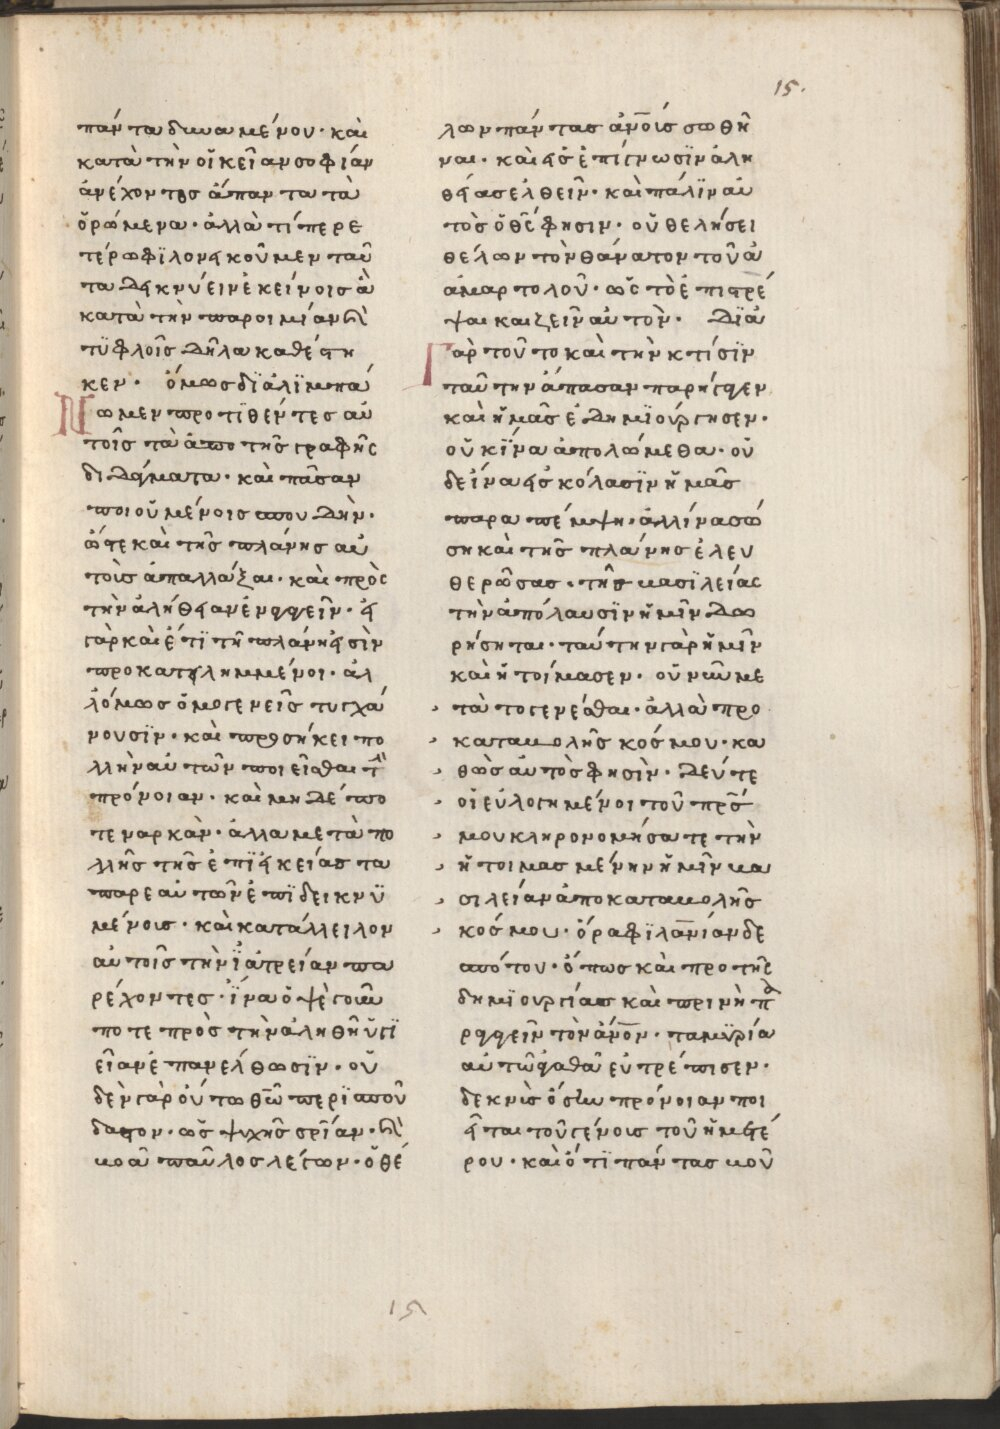 15.
πάντα δυναμένου· καὶ
κατὰ τὴν οἰκεῖαν σοφίαν
ἀνέχοντος ἅπαντα τὰ
ὁρώμενα· ἀλλὰ τί περε
τέρω φϊλονεικοῦμεν ταῦ
τα δεικνύειν ἐκείνοις ἃ
κατὰ τὴν παροιμίαν καὶ
τϋφλοῖς δῆλα καθέστη
κεν· ὅμως δϊαλϊμπά
Νωμεν προτϊθέντες αὐ
τοῖς τὰ ἀπο τῆς γραφῆς
διδάγματα· καὶ πᾶσαν
ποιοῦμένοις σπουδὴν·
ὥστε καὶ τῆς πλάνης αὐ
τοὺς ἀπαλλάξαι· καὶ πρὸς
τὴν ἀλήθειαν ἐναγαγεῖν· εἰ
γὰρ καὶ ἔτϊ τῆ πλάνη εἰσὶν
προκατειλημμένοι· ἀλ
λόμως ὁμογενεῖς τυγχά
νουσϊν· καὶ προσήκει πο
λλὴν αὐτῶν ποιεῖσθαι τὴν
πρόνοιαν· καὶ μηδέπο
τε ναρκὰν· ἀλλα μετὰ πο
λλῆς τῆς ἐπϊεικείας τα
παρεαυτῶν ἐπϊδεικνϋ
μένοις· καὶ κατάλλειλον
αὐτοῖς τὴν ϊατρείαν πα
ρέχοντες· ἵνα ὀψὲ γοῦν
ποτε πρὸς τὴν ἀληθῆ ὑγϊ
εῖαν ἐπανέλθωσϊν· οὐ
δὲν γὰρ οὕτω θῶ περϊσπού
δαστον· ὡς ψυχῆς σρΐαν· καὶ
βοᾶ παῦλος λέγων· ὁ θέ
λων πάντας ἀνοίς σωθῆ
ναι· καὶ εἰς ἐπίγνωσϊν ἀλη
θείας ἐλθεῖν· καὶ πάλϊν αὐ
τὸς ὁ θς ἔφησιν· οὐ θελήσει
θέλων τὸν θάνατον τοῦ ἁ
ἁμαρτολοῦ· ὡς τὸ ἐπιστρέ
ψαι και ζεῖν αὐτὸν· Δϊὰ
Γὰρ τοῦτο καὶ τὴν κτίσϊν
ταύτην ἅπασαν παρήγαγεν
καὶ ἡμᾶς ἐδημϊούργησεν·
οὐκ ἵνα ἀπολώμεθα· οὐ
δεἵνα εἰς κόλασϊν ἡμᾶς
παραπέμψη· ἀλλ ἵνα σώ
ση καὶ τῆς πλάνης ἐλευ
θερώσας· τῆς βασϊλείας
τὴν ἀπόλαυσϊν ἡμῖν δω
ρήσηται· ταύτην γὰρ ἡμῖν
καὶ ἡτοίμασεν· οὐ νῦν με
τὰ το γενέσθαι· ἀλλὰ προ
καταβολῆς κόσμου· κα
θὼς αὐτὸς φησϊν· Δεύτε
οἱ εὐλογημένοι τοῦ πρς
μου κληρονομήσατε τὴν
ἡτοιμασμένην ἡμῖν βα
σιλείαν ἀπο καταβολῆς
κόσμου· ὅρα φϊλανίαν δε
σπότου· ὅπως καὶ προ τῆς
δημϊουργίας καὶ πρινὴ πα
ραγαγεῖν τὸν ἄνον· τα μϋρία
αὐτῶ ἀγαθὰ εὐτρέπισεν·
δεκνὺς ὅσην πρόνοιαν ποι
εῖται τοῦ γένους τοῦ ἡμετέ
ρου· καὶ ὅτϊ πάντας βού
15